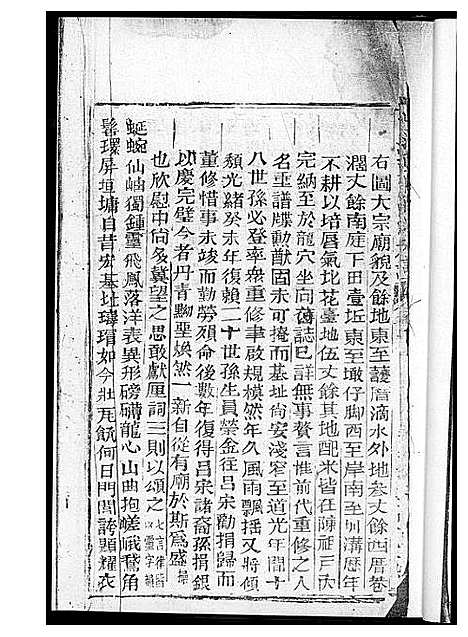 右圖大宗廟貌及餘地東至護厝滴水外地叁丈餘西厝巷
濶丈餘南庭下田壹坵東至墘仔脚西至岸南至圳溝歷年
不耕以培唇氣圮花臺地伍丈餘其地配米皆在陳祖三大
完納至於龍穴坐向舊誌已詳無事贅言惟前代重修之人
名重譜牒勳猷固未可掩而基址尚安淺窄至道光年間十
八世孫必登率衆重修聿啟規模然年久風雨飄搖又將傾
頹光緒癸未年復賴二十世孫生員榮金往呂宋勸捐歸而
董修惜事未竣而勤勞殞命後數年復得呂宋諸裔孫捐銀
以慶完璧今者丹青黝堊煥然一新自從有廟於斯爲盛
也欣慰中尚多冀望之思敢獻厘詞三則以頌之七言律詩以靈字韻
蜿蜒仙岫獨鍾靈飛鳳落洋表異形磅礡龍心山曲抱嵯峨鵞角
髻環屏垣墉自昔宏基址璋瑁如今壯瓦甋何日門閭誇顯耀衣